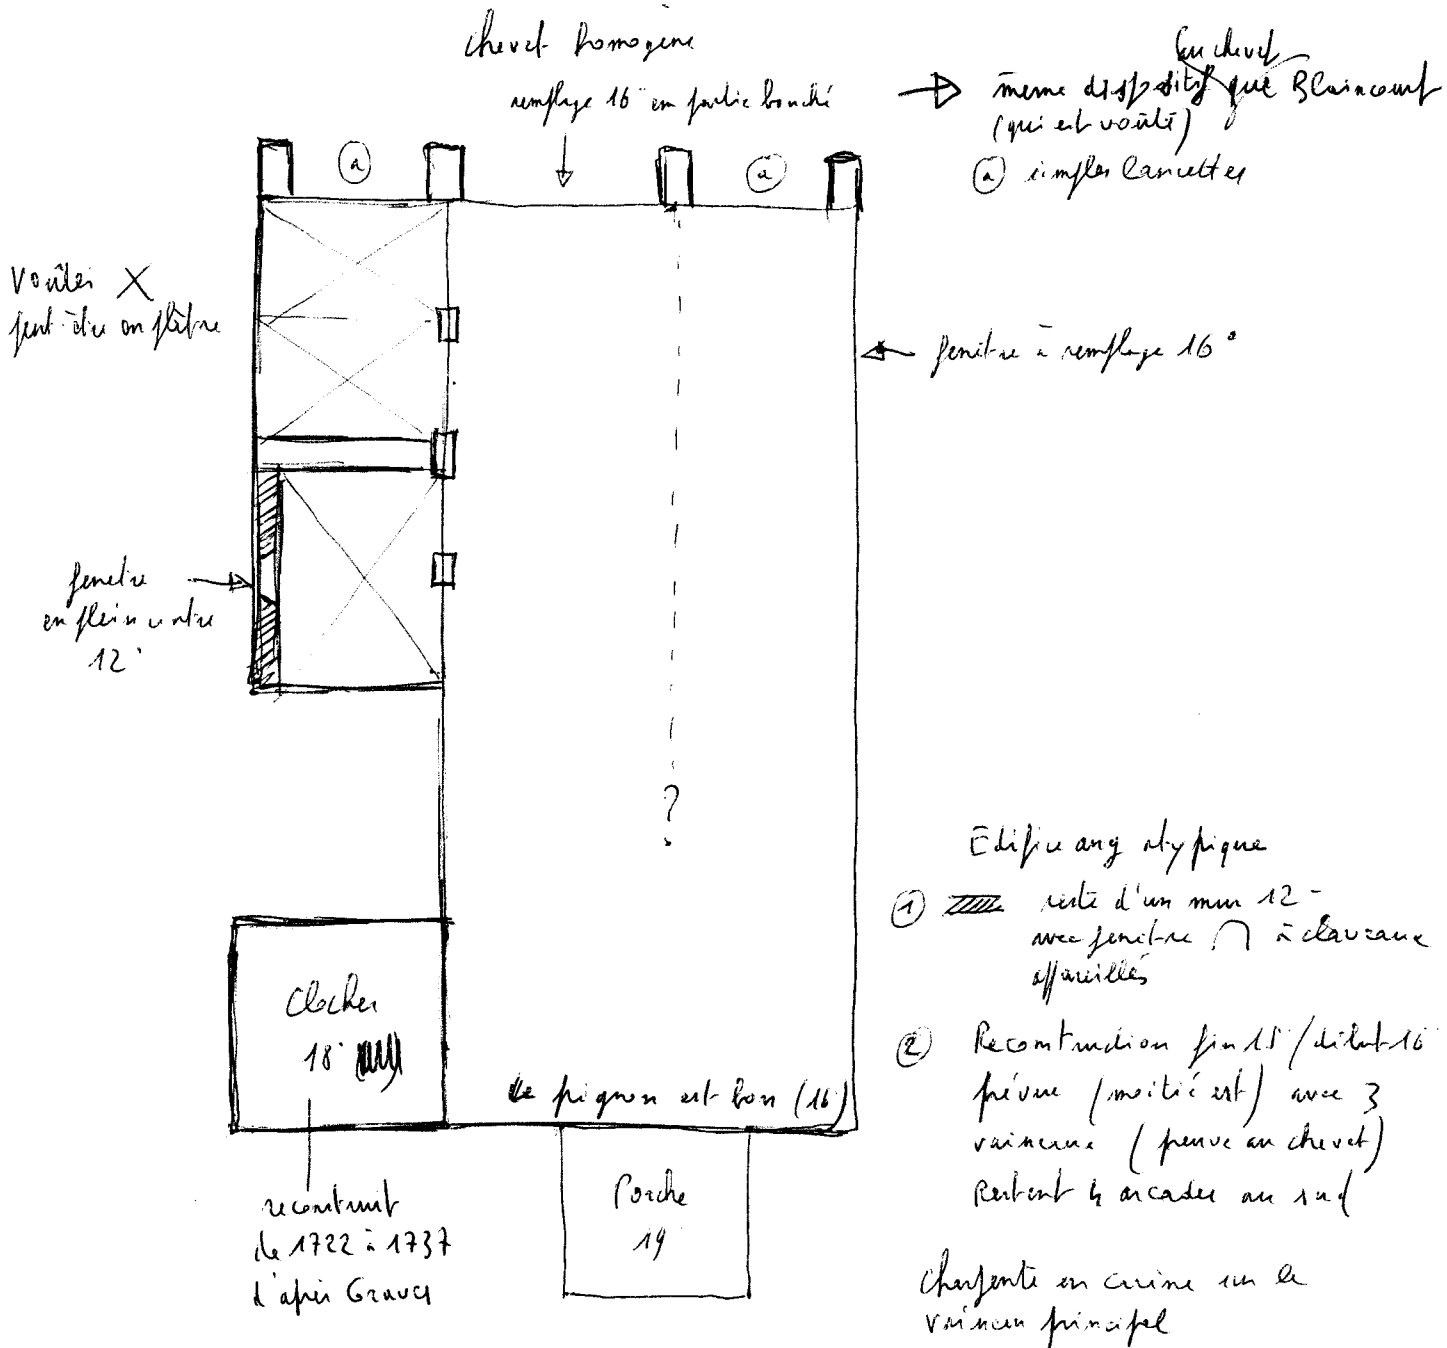 chevet homogène
remplage 16° en partie bouché
au chevet
même dispositif que Blaincourt
(qui est voûté)
ⓐ simples lancettes
ⓐ
ⓐ
Voûtes X
peut-être en plâtre
fenêtre à remplage 16°
fenêtre
en plein cintre
12°
?
Edifice assez atypique
① reste d'un mur 12°
avec fenêtre ∩ à claveaux
appareillés
② Reconstruction fin 15°/début 16°
prévue (moitié est) avec 3
vaisseaux (preuve au chevet)
Restent 4 arcades au sud
charpente en carène sur le
vaisseau principal
Clocher
18°
le pignon est bon (16)
Porche
19°
reconstruit
de 1722 à 1737
d'après Graves